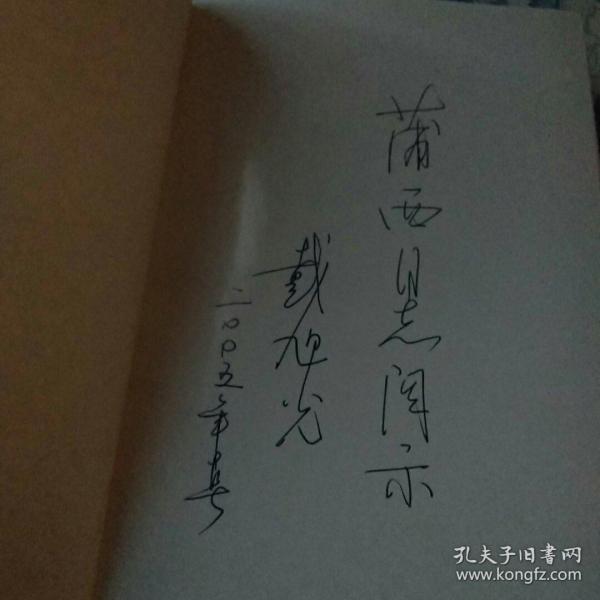 蒲西同志阅示
戴旭光
二〇〇五年春
孔夫子旧書网
www.kongfz.com